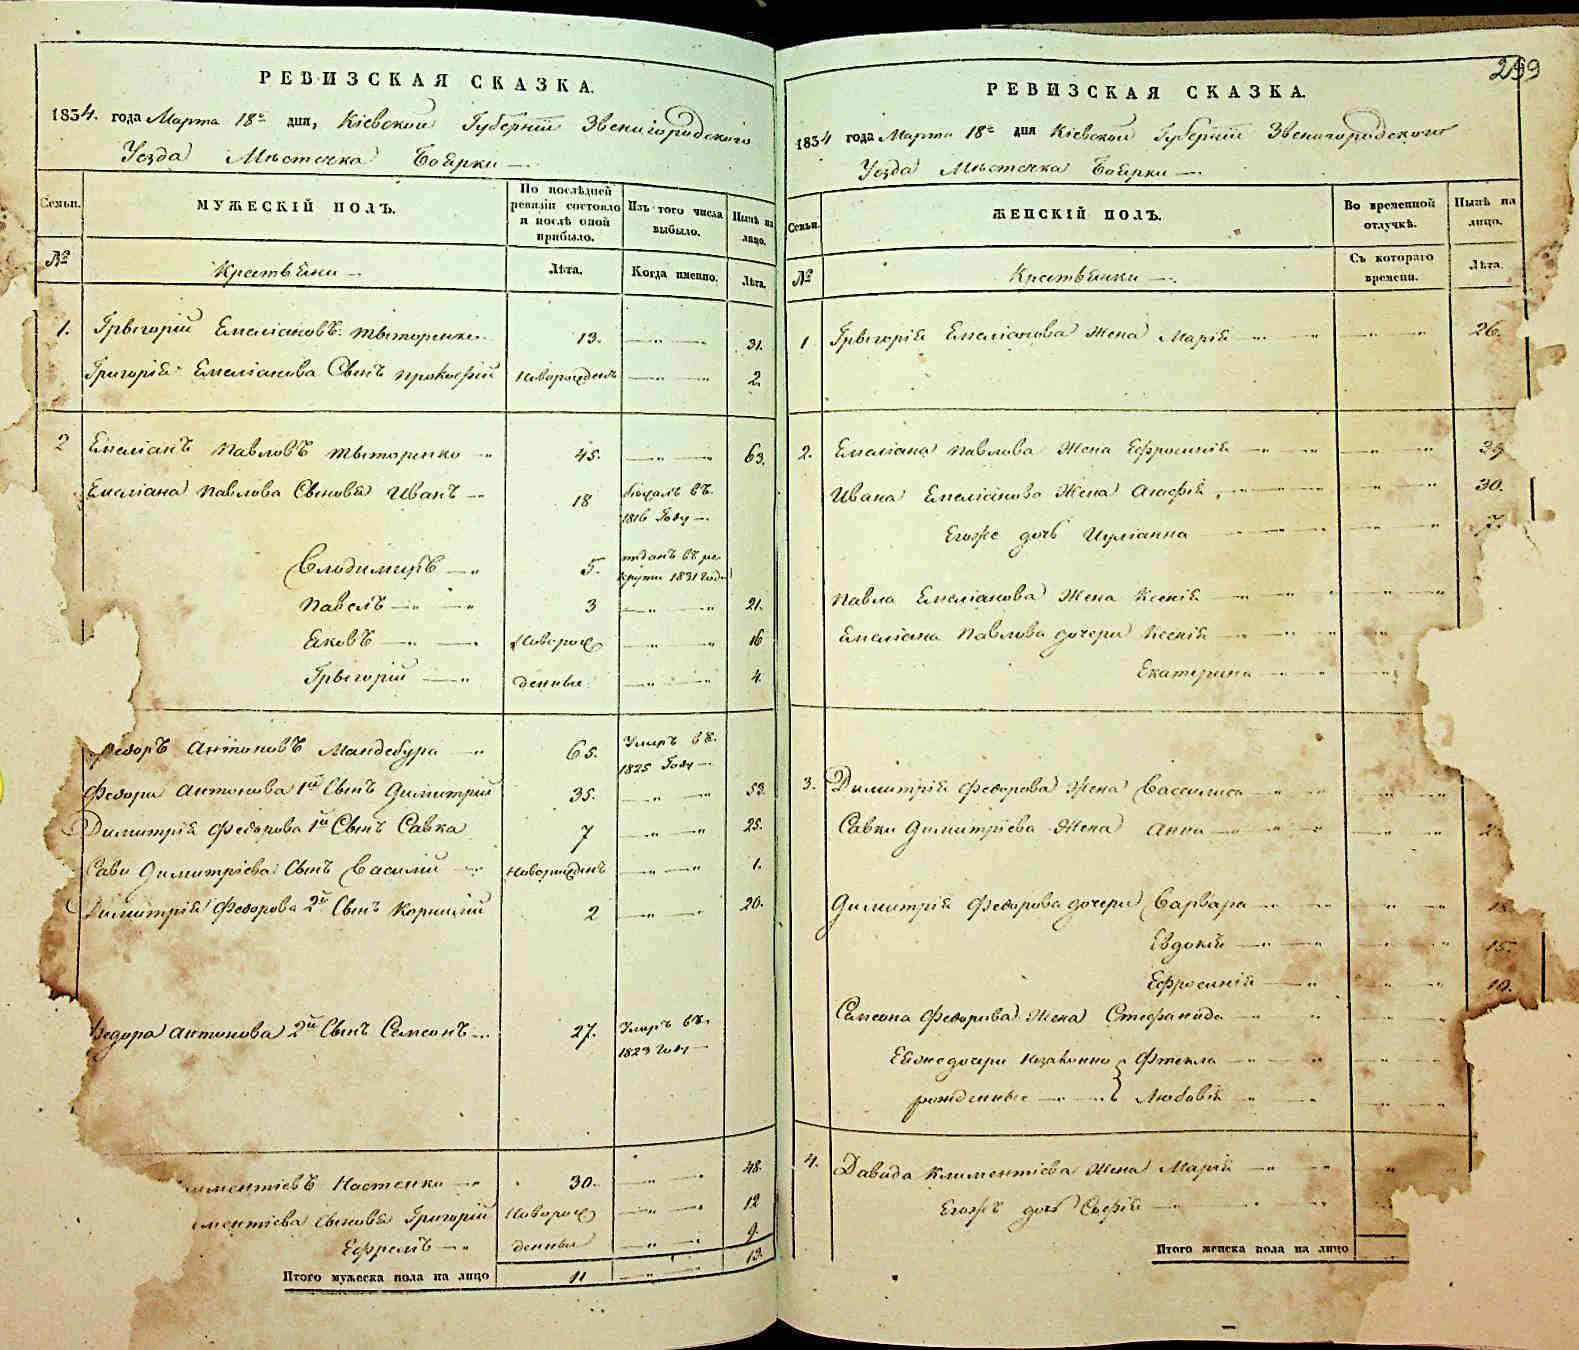 РЕВИЗСКАЯ СКАЗКА.
1834. года Марта 18го дня, Кіевской Губерніи Звенигородского
Уезда Мѣстечка Боярки
Семьи. МУЖЕСКІЙ ПОЛЪ. По послѣдней ревизіи состояло и послѣ оной прибыло. Изъ того числа выбыло. Нынѣ на лицо.
№ Крестьяни Лѣта. Когда именно. Лѣта.
1. Грыгорій Емеліановъ Тыторенко 13. 31.
Григорія Емеліанова Сынъ Прокофій Новорожденъ 2.
2 Емеліанъ Павловъ Тыторенко 45. 63.
Емеліана Павлова Сыновя Иванъ 18 въ
1816 Году
Влодимиръ 5. отданъ въ ре
круты 1831 Года
Павелъ 3 21.
Яковъ Новорож 16
Грыгорій денные 4.
Федоръ Антоновъ Мандебура 65. Умеръ въ
1825 Году
Федора Антонова 1й Сынъ Димитрій 35. 53.
Димитрія Федорова 1й Сынъ Савка 7 25.
Савы Димитріева Сынъ Василій Новорожденъ 1.
Димитрія Федорова 2й Сынъ Корнилій 2 20.
Федора Антонова 2й Сынъ Семеонъ 27. Умеръ въ
1823 Году
Настенко 30. 48.
Сыновя Григорій Новорож 12
Ефремъ денные 9.
Итого мужеска пола на лицо 11 13.
299
РЕВИЗСКАЯ СКАЗКА.
1834 года Марта 18го дня Кіевской Губерніи Звенигородского
Уезда Мѣстечка Боярки
Семьи. ЖЕНСКІЙ ПОЛЪ. Во временной отлучкѣ. Нынѣ на лицо.
№ Крестьянки Съ котораго времени. Лѣта.
1 Грыгорія Емеліанова Жена Марія 26.
2. Емеліана Павлова Жена Ефросинія
Ивана Емеліанова Жена Агафія 30.
Егоже дочь Иуліанна 7.
Павла Емеліанова Жена Ксенія
Емеліана Павлова дочери Ксенія
Екатерина
3. Димитрія Федорова Жена Василиса
Савки Димитріева Жена Анна
Димитрія Федорова дочери Варвара 18.
Евдокія 15.
Ефросинія 10.
Семеона Федорова Жена Стефанида
Еяже дочери незаконно Фтекла
рожденные Любовія
4. Давида Климентіева Жена Марія
Егожъ дочь Софія
Итого женска пола на лицо